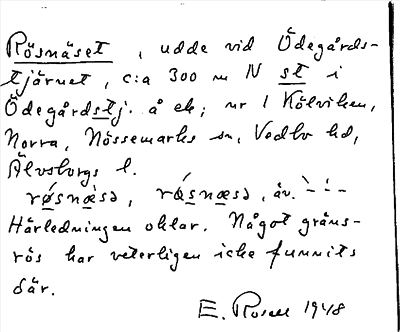 Rösnäset, udde vid Ödegårds-
tjärnet, c:a 300 m N st i
Ödegårdstj. å ek; nr 1 Kölviken,
Norra, Nössemarks sn, Vedbo hd,
Älvsborgs l.
røsnæsə, rœsnæsə, äv. `-´-
Härledningen oklar. Något gräns-
rös har veterligen icke funnits
där.
E. Rosell 1948